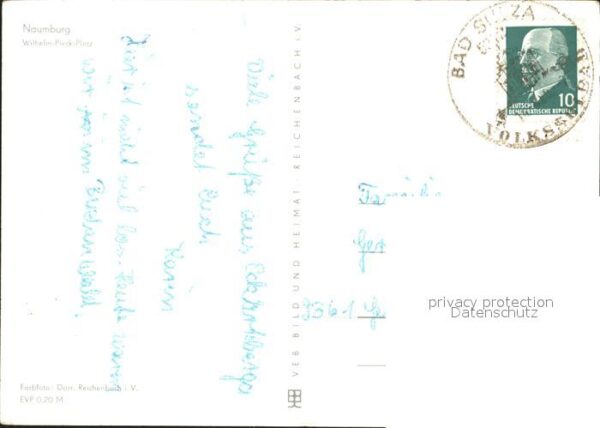 Naumburg
Wilhelm-Pieck-Platz
Viele Grüße aus Eckartsberga
sendet Euch
Karin
Hier ist nicht viel los. Heute waren
wir in Buchenwald.
Farbfoto: Darr, Reichenbach i. V.
EVP 0,20 M
VEB BILD UND HEIMAT · REICHENBACH i. V.
BAD SULZA
VOLKSSOLBAD
10
DEUTSCHE
DEMOKRATISCHE REPUBLIK
Familie
Ger
privacy protection
Datenschutz